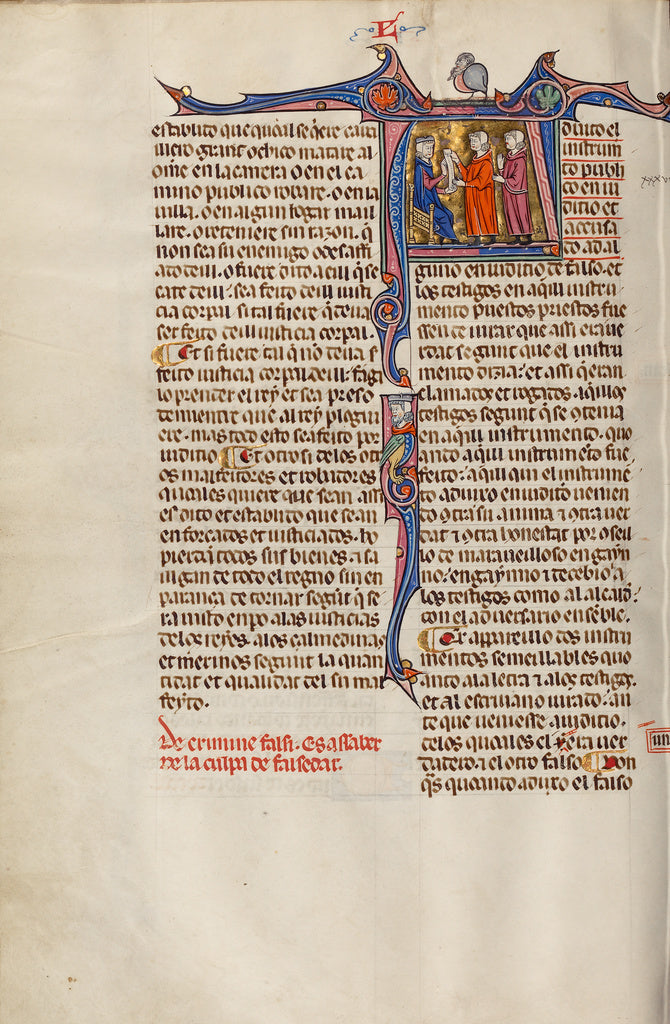 L
establito que qual se q̄ere caua
llero grant o chico matare al
ome en la carrera o en el ca
mino publico robare · o en la
uilla · o en algun logar mal
lare · o reteniere sin razon · q̄
non sea su enemigo
cia corpal · si tal fuere
ser feito deill iusticia corpal ·
Et si fuere tal q̄ no deua s
feito iusticia corpal deill · faga
lo prender el rey et sea preso
demientre que al rey plogui
ere · mas todo esto sea feito por
iudicio · Et otro si de los otr
os malfeitores et robadores
quales quiere que sean assi
es dito et establito que sean
enforcados et iusticiados · ho
pierdā todos sus bienes · z sa
uigan de todo el regno sin es
parança de tornar segūt q̄ se
ra uisto enpo a las iusticias
de los reyes · a los calmedinas
et merinos segunt la quan
tidat et qualidat del su mal
feyto ·
De crimine falsi · Es assaber
de la culpa de falsedat ·
duito el
instrum
to publi
co en iu
ditio et
accusa
do ad al
guno en iuditio de falso · et
los testigos en aqill instru
mento puestos priestos fue
ssen de iurar que assi era ue
rdat segunt que el instru
mento dizia · et assi q̄ eran
clamados et rogados · aq̄llos
testigos segunt q̄ se 9tenia
en aqill instrumento · quo
ando aqill instrumēto fue
feito · aqill qui el instrumē
to aduxo en iuditio uienen
do 9tra su anima z 9tra uer
dat z 9tra honestat por 9seil
lo de marauelloso engayn
no · engaynno z decebio a
los testigos como al alcald
con el aduersario ensēble ·
Et appareillados instru
mentos semeillables quo
anto a la letra z a los testigos
et al escriuano iurado · an
te que ueniesse a iuditio ·
de los quales el ƺera uer
dadero z el otro falso Con
q̄s quoando aduxo el falso